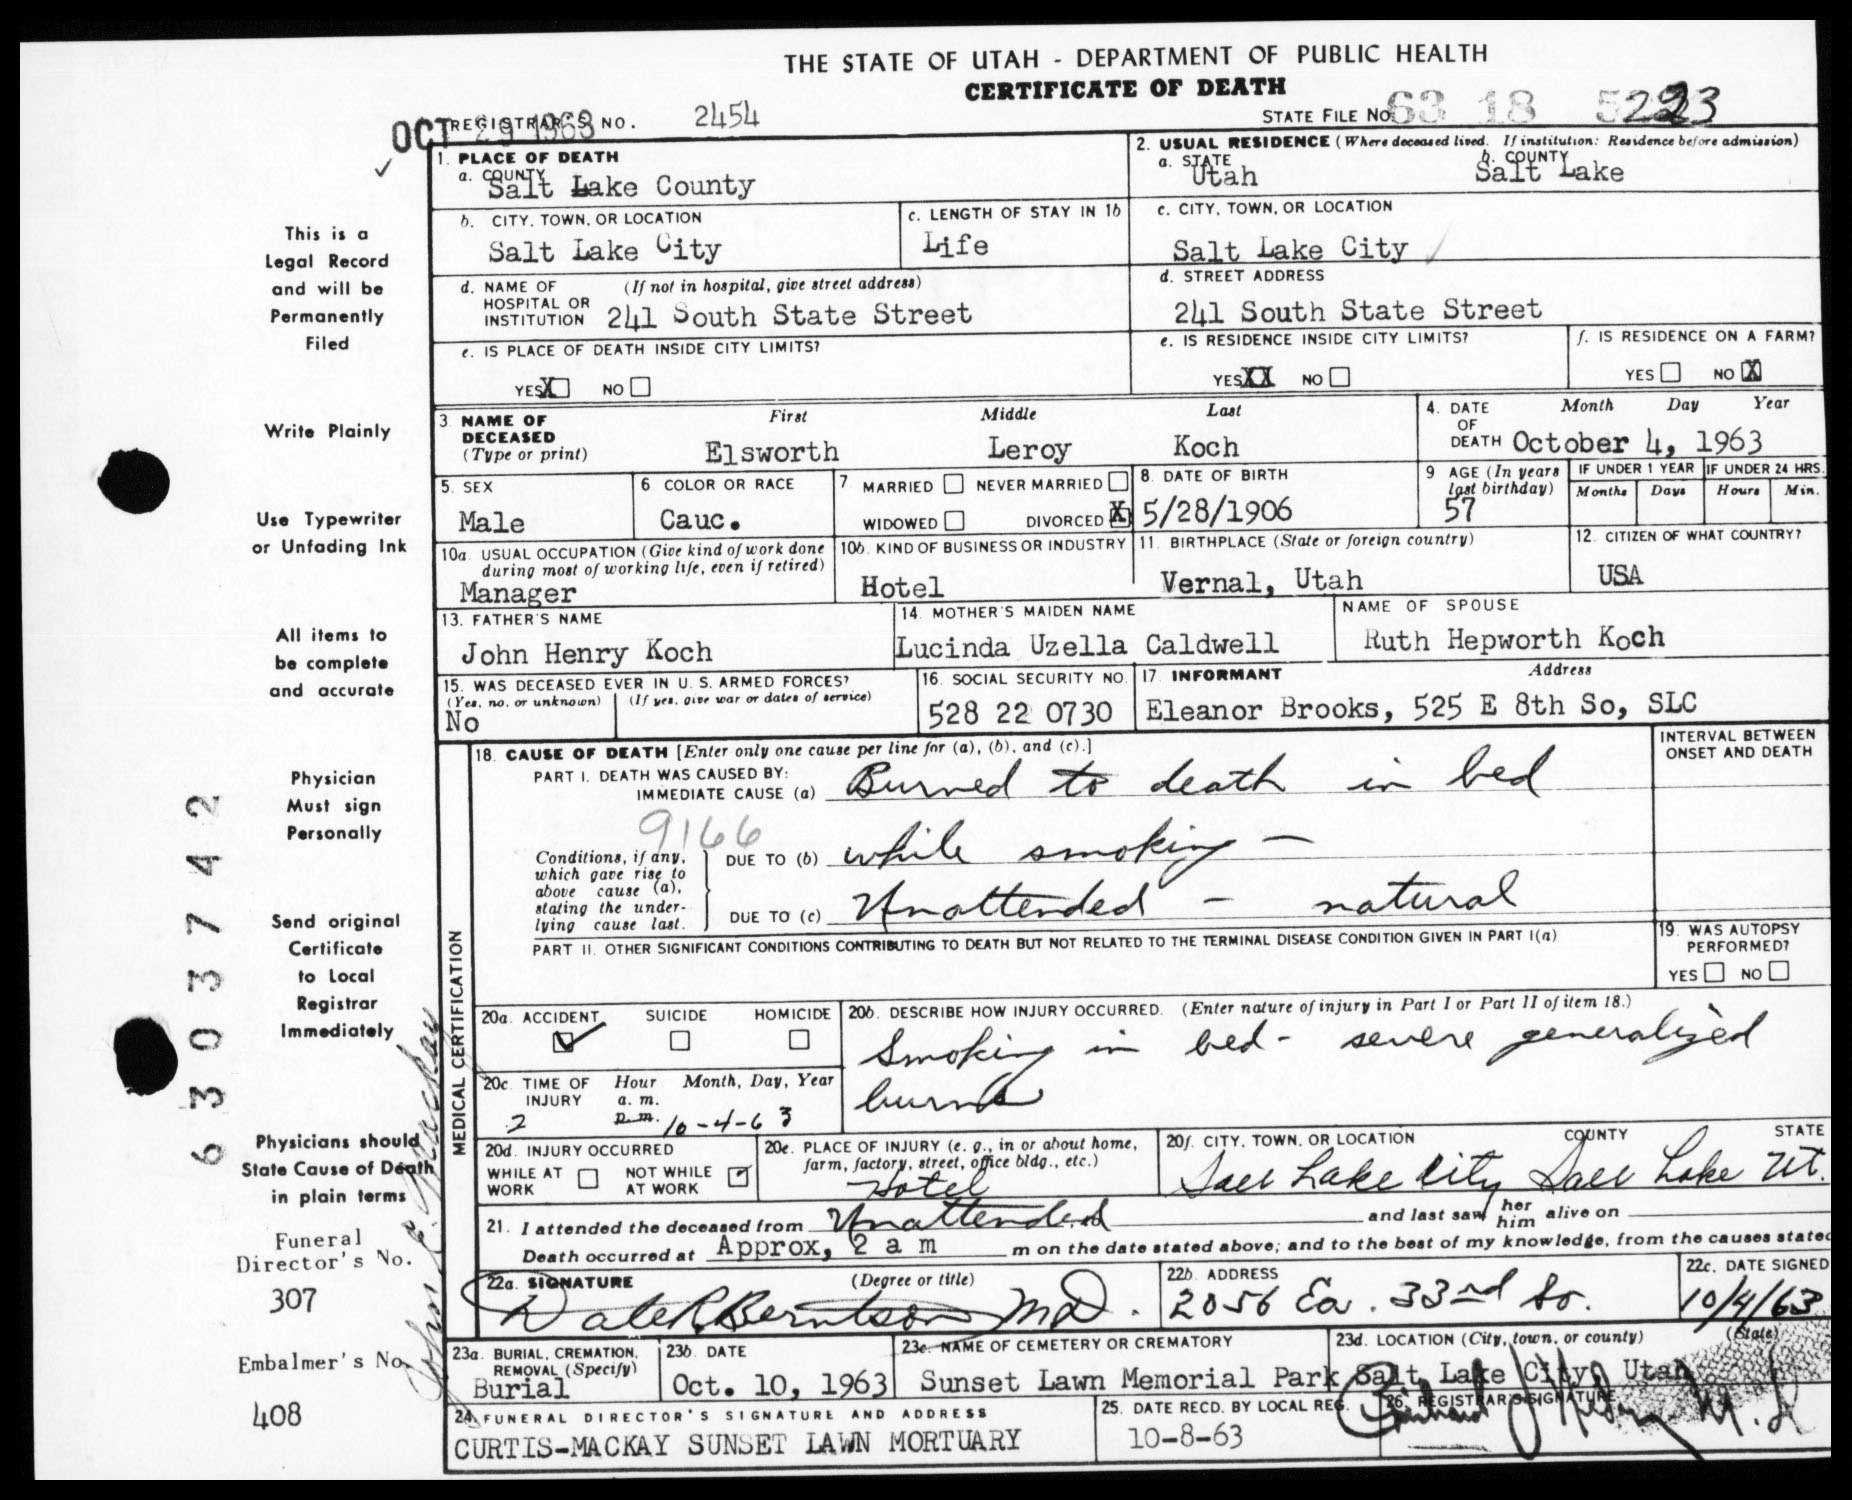 THE STATE OF UTAH - DEPARTMENT OF PUBLIC HEALTH
CERTIFICATE OF DEATH
REGISTRAR'S NO. 2454
STATE FILE NO. 63 18 5223
OCT 29 1963
1. PLACE OF DEATH
a. COUNTY
Salt Lake County
2. USUAL RESIDENCE (Where deceased lived. If institution: Residence before admission)
a. STATE b. COUNTY
Utah Salt Lake
b. CITY, TOWN, OR LOCATION
Salt Lake City
c. LENGTH OF STAY IN 1b
Life
c. CITY, TOWN, OR LOCATION
Salt Lake City
d. NAME OF (If not in hospital, give street address)
HOSPITAL OR
INSTITUTION 241 South State Street
d. STREET ADDRESS
241 South State Street
e. IS PLACE OF DEATH INSIDE CITY LIMITS?
YES X NO
e. IS RESIDENCE INSIDE CITY LIMITS?
YES XX NO
f. IS RESIDENCE ON A FARM?
YES NO X
3. NAME OF DECEASED
(Type or print)
First Middle Last
Elsworth Leroy Koch
4. DATE OF DEATH
Month Day Year
October 4, 1963
5. SEX
Male
6 COLOR OR RACE
Cauc.
7 MARRIED NEVER MARRIED
WIDOWED DIVORCED X
8. DATE OF BIRTH
5/28/1906
9 AGE (In years last birthday)
57
IF UNDER 1 YEAR IF UNDER 24 HRS.
Months Days Hours Min.
10a. USUAL OCCUPATION (Give kind of work done
during most of working life, even if retired)
Manager
10b. KIND OF BUSINESS OR INDUSTRY
Hotel
11. BIRTHPLACE (State or foreign country)
Vernal, Utah
12. CITIZEN OF WHAT COUNTRY?
USA
13. FATHER'S NAME
John Henry Koch
14. MOTHER'S MAIDEN NAME
Lucinda Uzella Caldwell
NAME OF SPOUSE
Ruth Hepworth Koch
15. WAS DECEASED EVER IN U. S. ARMED FORCES?
(Yes, no, or unknown) (If yes, give war or dates of service)
No
16. SOCIAL SECURITY NO.
528 22 0730
17. INFORMANT Address
Eleanor Brooks, 525 E 8th So, SLC
18. CAUSE OF DEATH [Enter only one cause per line for (a), (b), and (c).]
INTERVAL BETWEEN
ONSET AND DEATH
PART I. DEATH WAS CAUSED BY:
IMMEDIATE CAUSE (a) Burned to death in bed
9166
Conditions, if any,
which gave rise to
above cause (a),
stating the under-
lying cause last.
DUE TO (b) while smoking -
DUE TO (c) Unattended - natural
PART II. OTHER SIGNIFICANT CONDITIONS CONTRIBUTING TO DEATH BUT NOT RELATED TO THE TERMINAL DISEASE CONDITION GIVEN IN PART I(a)
19. WAS AUTOPSY
PERFORMED?
YES NO
MEDICAL CERTIFICATION
20a. ACCIDENT SUICIDE HOMICIDE
20b. DESCRIBE HOW INJURY OCCURRED. (Enter nature of injury in Part I or Part II of item 18.)
Smoking in bed - severe generalized
burns
20c. TIME OF INJURY
Hour Month, Day, Year
a. m.
p. m.
2 10-4-63
20d. INJURY OCCURRED
WHILE AT WORK NOT WHILE AT WORK
20e. PLACE OF INJURY (e. g., in or about home,
farm, factory, street, office bldg., etc.)
Hotel
20f. CITY, TOWN, OR LOCATION COUNTY STATE
Salt Lake City Salt Lake Ut.
21. I attended the deceased from Unattended and last saw her him alive on
Death occurred at Approx, 2 a m m on the date stated above; and to the best of my knowledge, from the causes stated
22a. SIGNATURE (Degree or title)
Dale R Berntson MD.
22b. ADDRESS
2056 Ea. 33rd So.
22c. DATE SIGNED
10/4/63
23a. BURIAL, CREMATION,
REMOVAL (Specify)
Burial
23b. DATE
Oct. 10, 1963
23c. NAME OF CEMETERY OR CREMATORY
Sunset Lawn Memorial Park
23d. LOCATION (City, town, or county) (State)
Salt Lake City, Utah
24. FUNERAL DIRECTOR'S SIGNATURE AND ADDRESS
CURTIS-MACKAY SUNSET LAWN MORTUARY
25. DATE RECD. BY LOCAL REG.
10-8-63
26. REGISTRAR'S SIGNATURE
This is a
Legal Record
and will be
Permanently
Filed
Write Plainly
Use Typewriter
or Unfading Ink
All items to
be complete
and accurate
Physician
Must sign
Personally
Send original
Certificate
to Local
Registrar
Immediately
Physicians should
State Cause of Death
in plain terms
Funeral
Director's No.
307
Embalmer's No.
408
6303742